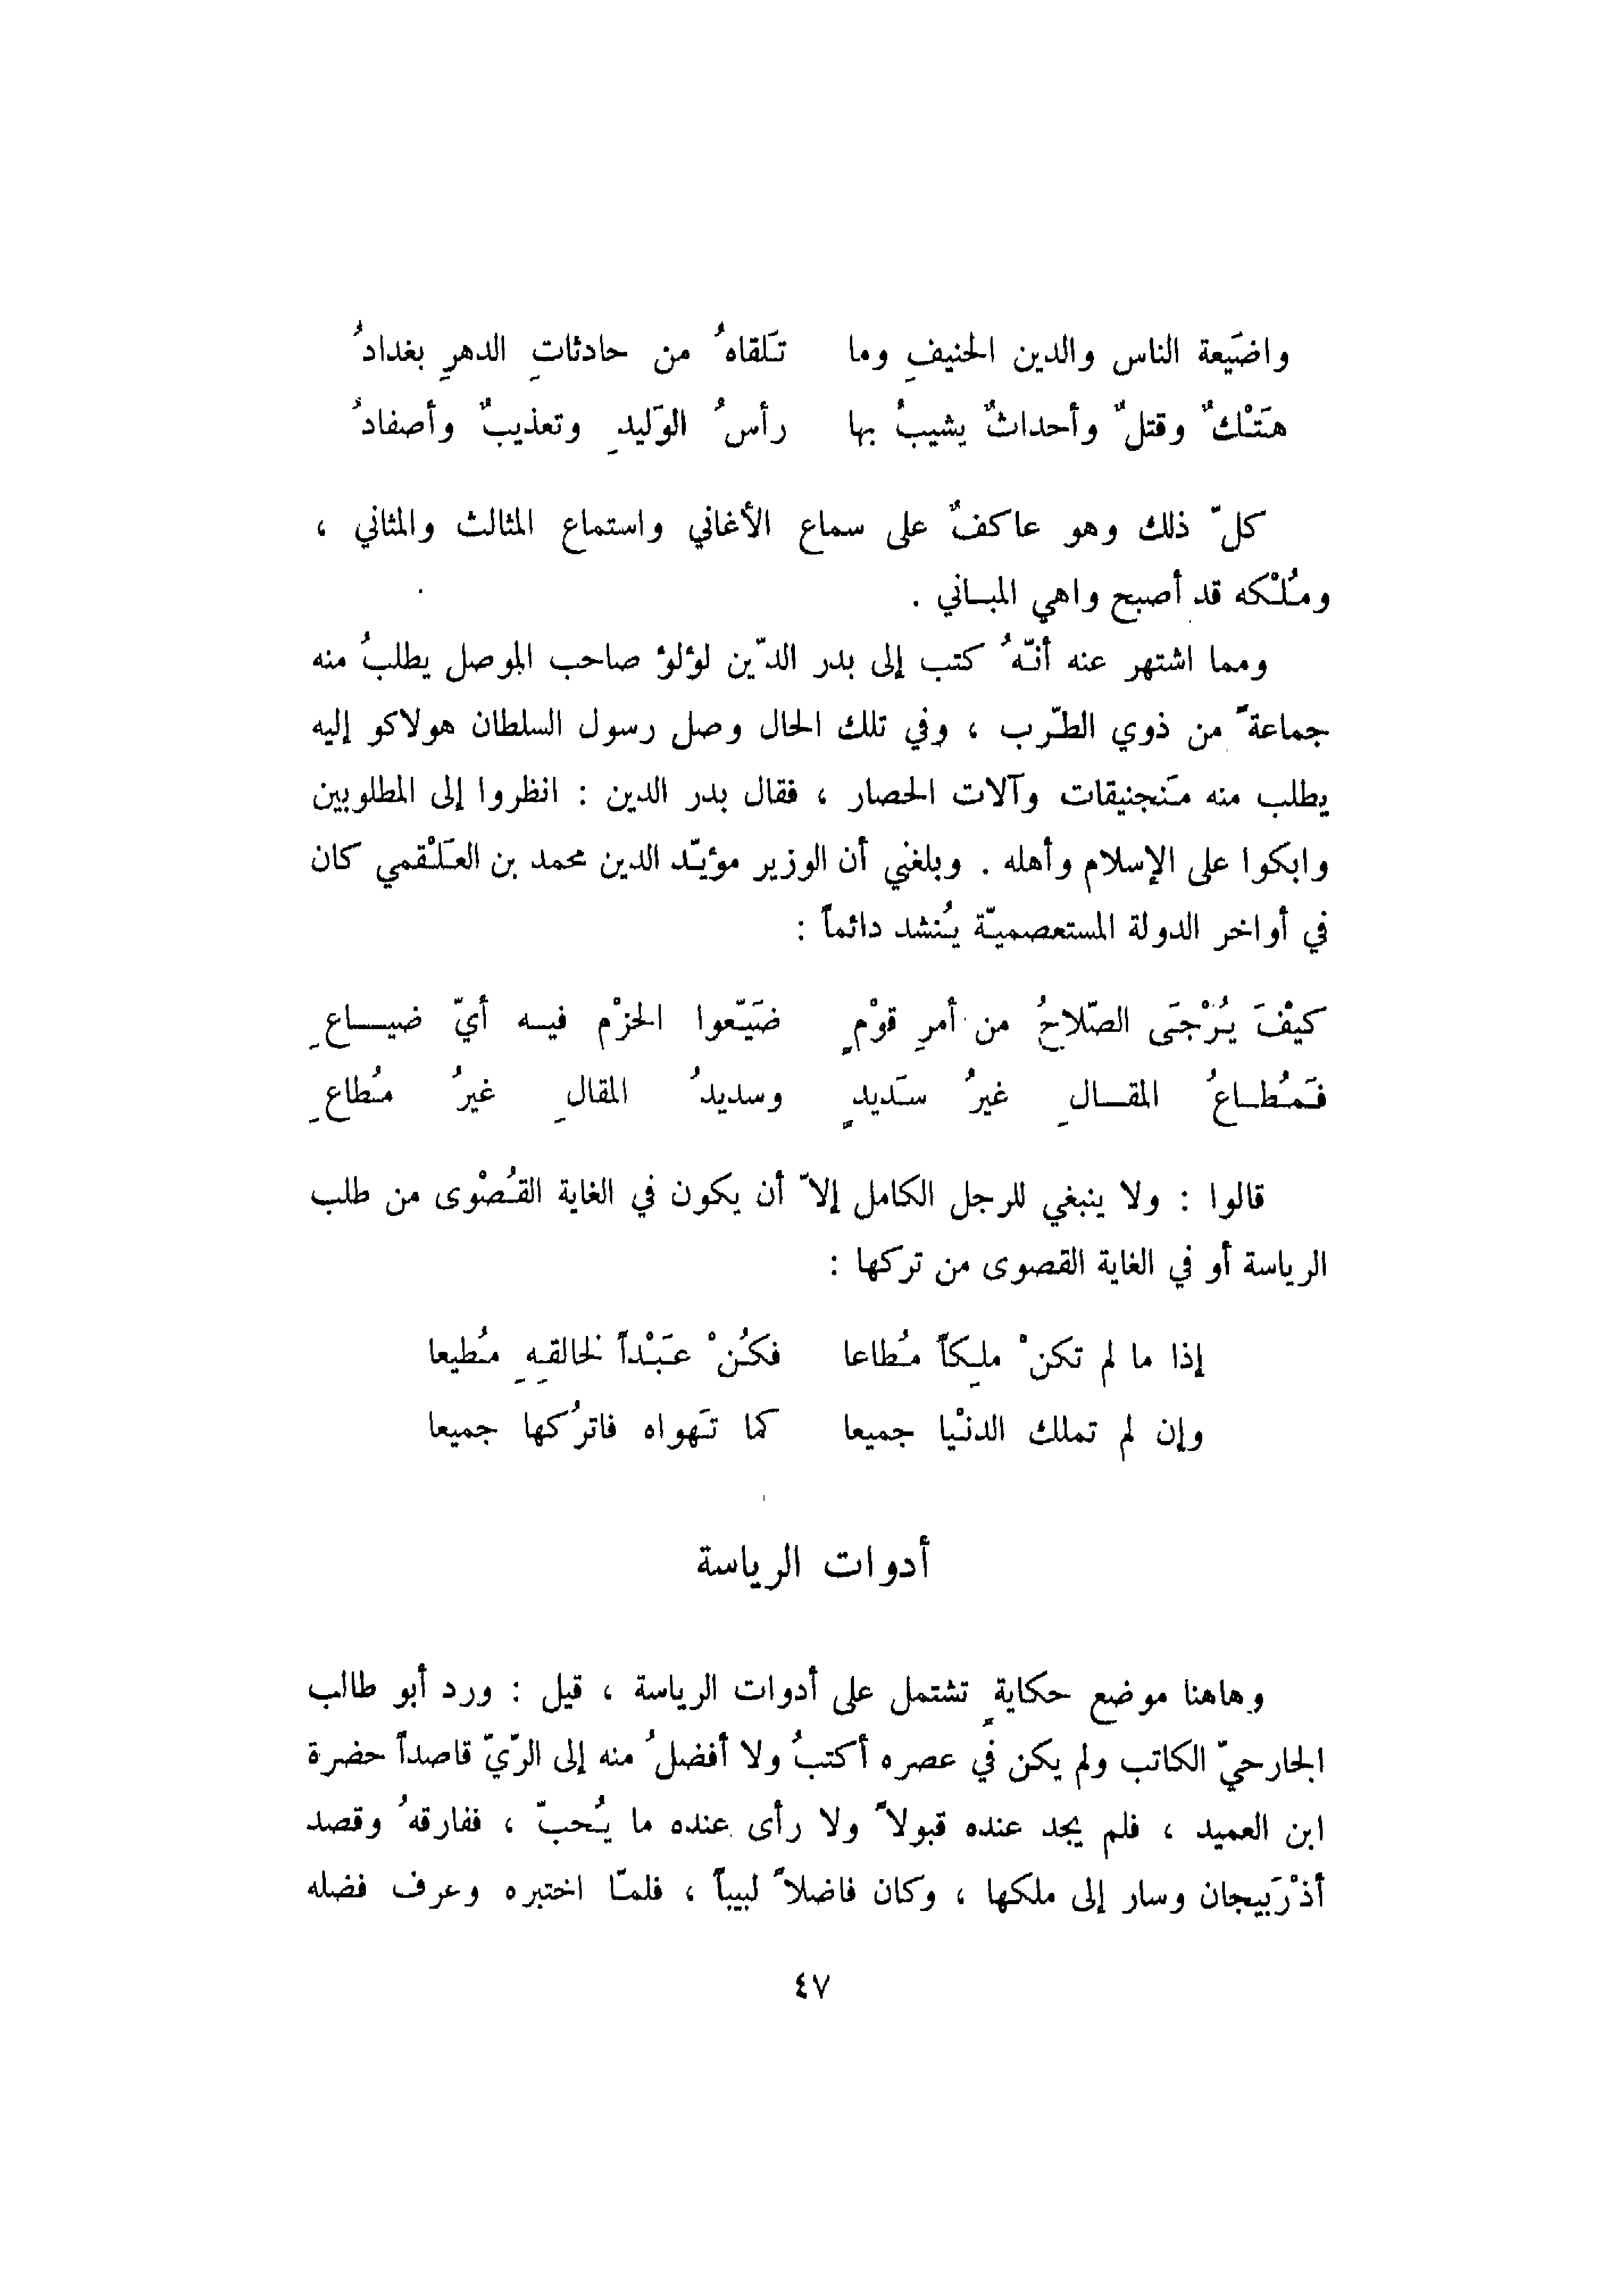 واضَيعة الناس والدين الحنيفِ وما تَلقاهُ من حادثاتِ الدهرِ بغدادُ
هَتْكٌ وقتلٌ وأحداثٌ يشيبُ بها رأسُ الوَليدِ وتعذيبٌ وأصفادُ
كلّ ذلك وهو عاكفٌ على سماع الأغاني واستماع المثالث والمثاني ،
ومُلْكه قد أصبح واهي المباني .
ومما اشتهر عنه أنّهُ كتب إلى بدر الدّين لؤلؤ صاحب الموصل يطلبُ منه
جماعةً من ذوي الطّرب ، وفي تلك الحال وصل رسول السلطان هولاكو إليه
يطلب منه مَنجنيقات وآلات الحصار ، فقال بدر الدين : انظروا إلى المطلوبين
وابكوا على الإسلام وأهله . وبلغني أن الوزير مؤيّد الدين محمد بن العَلْقمي كان
في أواخر الدولة المستعصميّة يُنشد دائماً :
كيفْ يُرْجَى الصّلاحُ من أمرِ قوْمٍ ضَيّعوا الحزْم فيه أيّ ضياعِ
فَمُطاعُ المقالِ غيرُ سَديدٍ وسديدُ المقالِ غيرُ مُطاعِ
قالوا : ولا ينبغي للرجل الكامل إلاّ أن يكون في الغاية القُصْوى من طلب
الرياسة أو في الغاية القصوى من تركها :
إذا ما لم تكنْ ملِكاً مُطاعا فكُنْ عَبْداً لخالقِهِ مُطيعا
وإن لم تملك الدنْيا جميعا كما تَهواه فاترُكها جميعا
أدوات الرياسة
وهاهنا موضع حكايةٍ تشتمل على أدوات الرياسة ، قيل : ورد أبو طالب
الجارحيّ الكاتب ولم يكن في عصره أكتبُ ولا أفضلُ منه إلى الرّيّ قاصداً حضرة
ابن العميد ، فلم يجد عنده قبولاً ولا رأى عنده ما يُحبّ ، ففارقهُ وقصد
أذْرَبيجان وسار إلى ملكها ، وكان فاضلاً لبيباً ، فلمّا اختبره وعرف فضله
٤٧